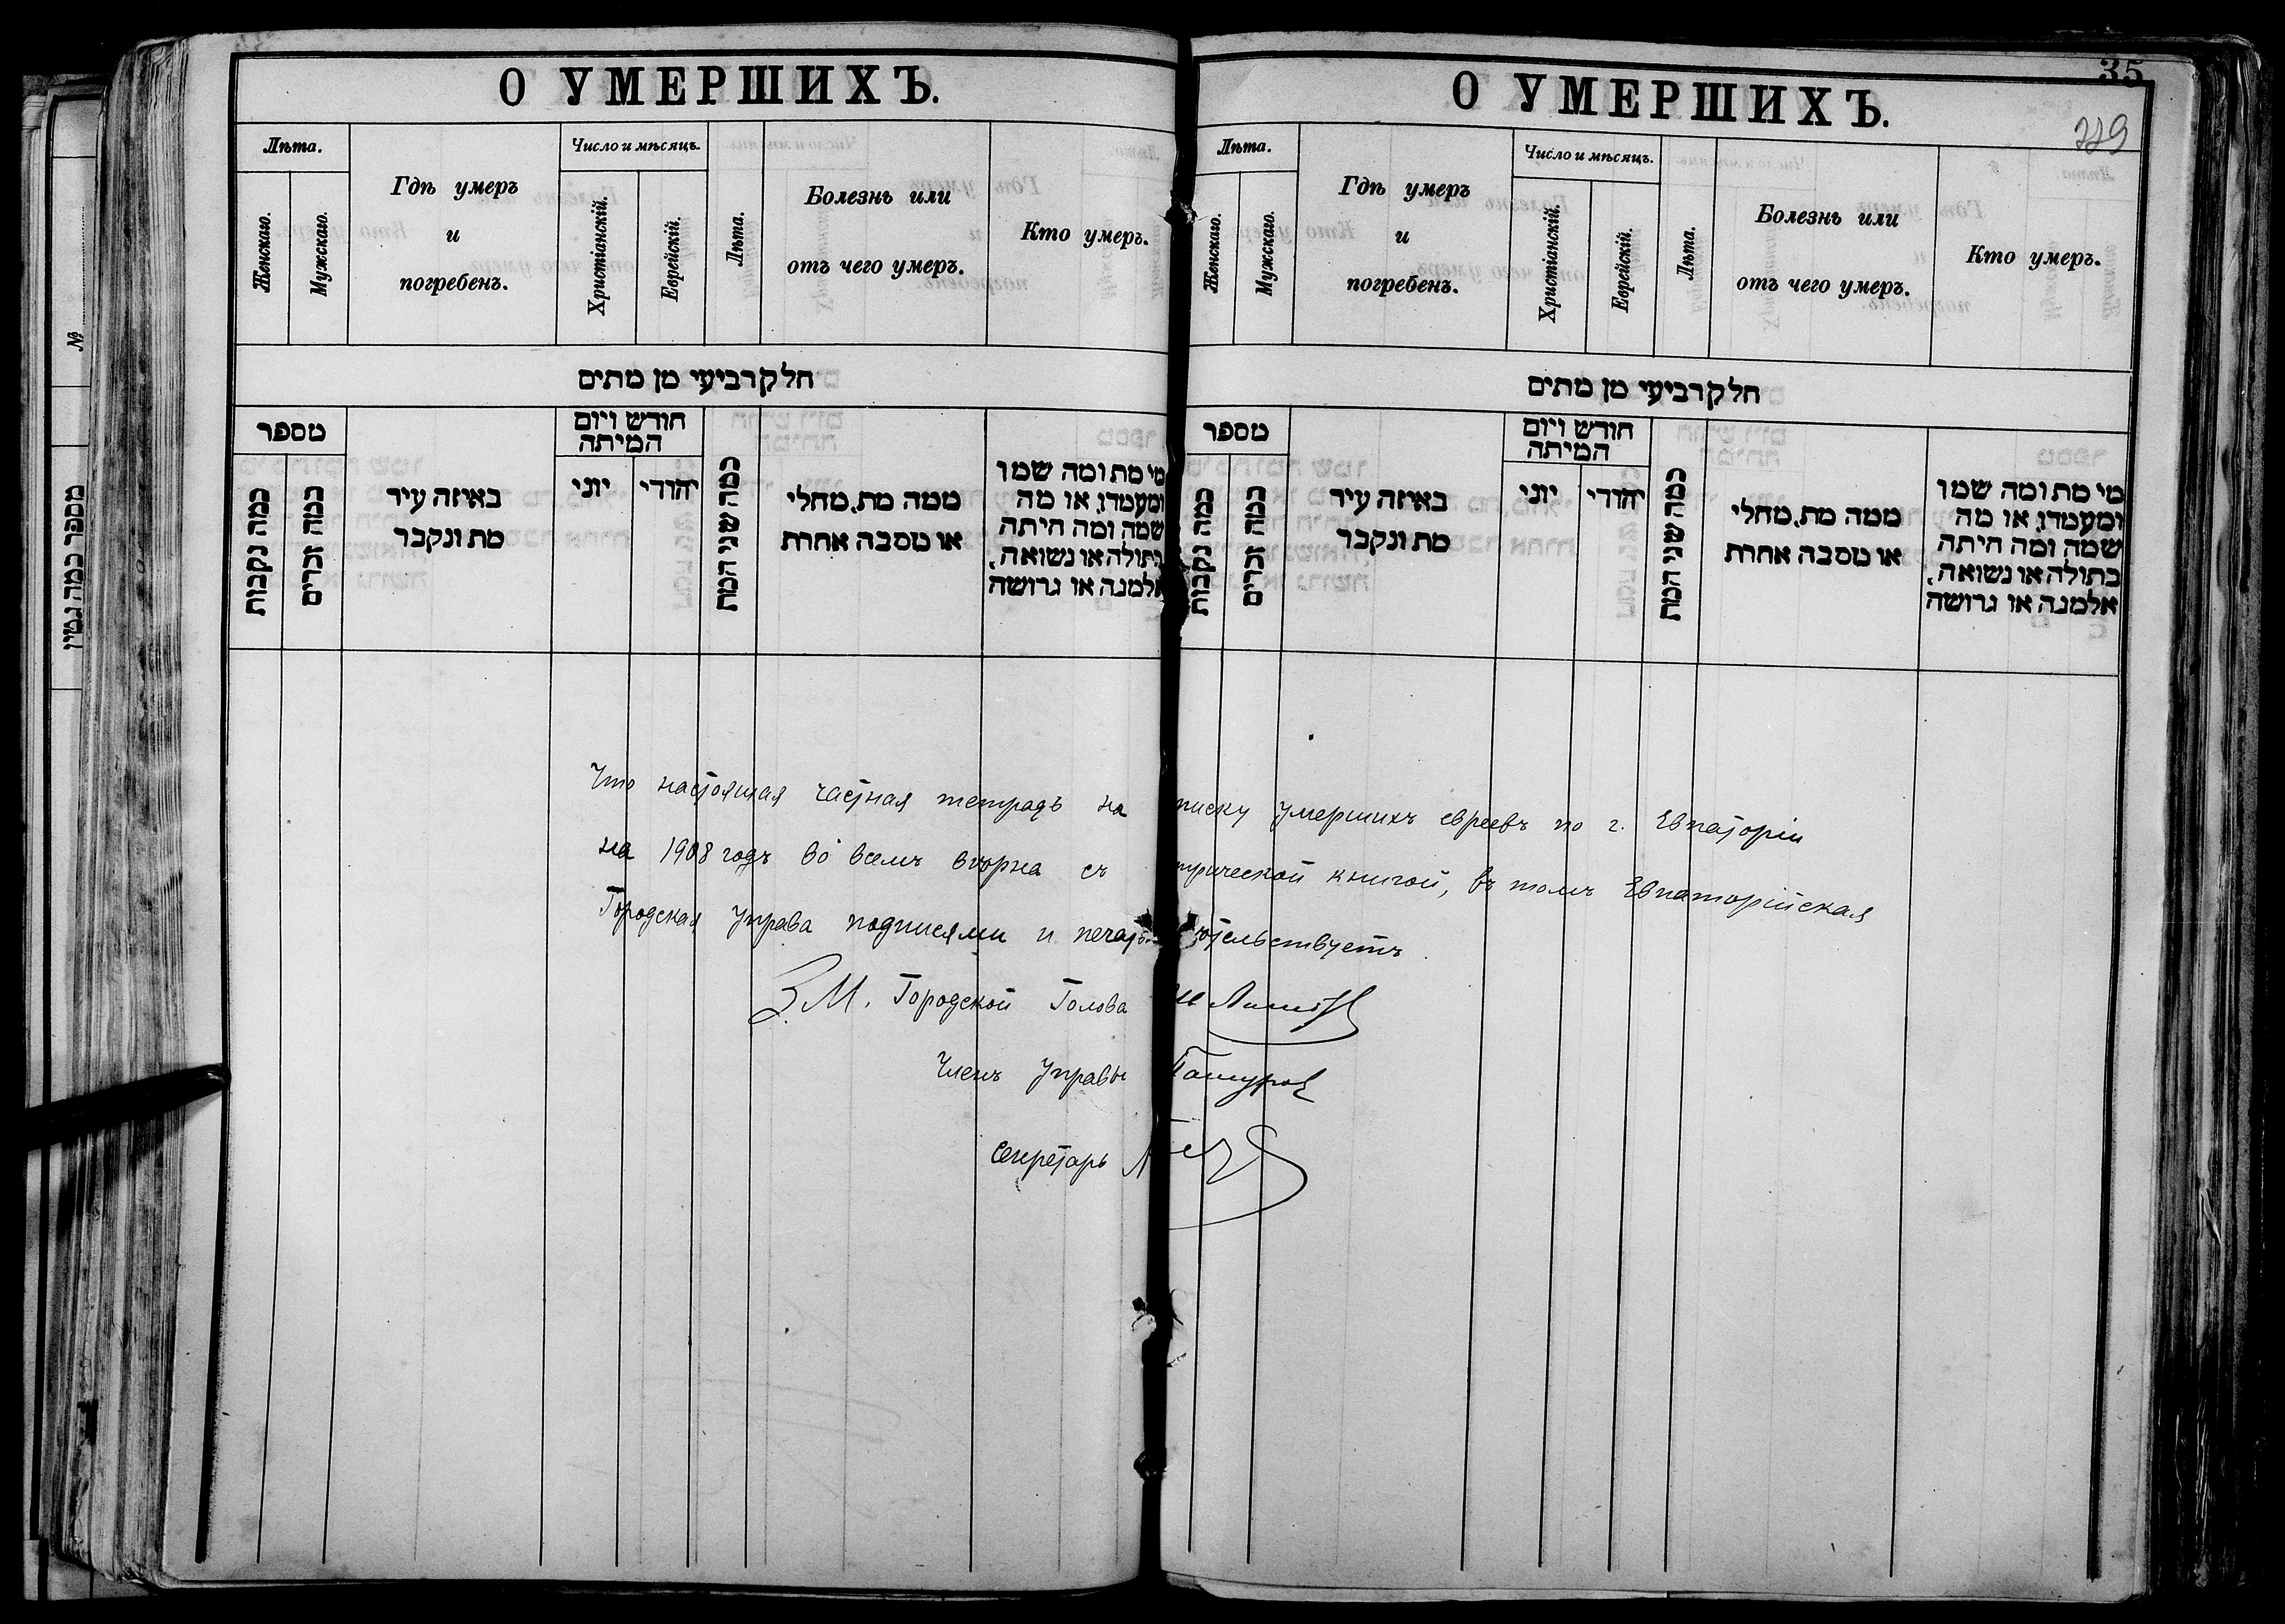 О УМЕРШИХЪ.
Лѣта.
Женскаго.
Мужскаго.
Гдѣ умеръ
и
погребенъ.
Число и мѣсяцъ.
Христіанскій.
Еврейскій.
Лѣта.
Болезнь или
отъ чего умеръ.
Кто умеръ.
חלק רביעי מן מתים
מספר
כמה נקבות
כמה זכרים
באיזה עיר
מת ונקבר
חודש ויום
המיתה
יוני
יהודי
כמה שני המת
ממה מת, מחלי
או מסבה אחרת
מי מת ומה שמו
ומעמדו, או מה
שמה ומה היתה
בתולה או נשואה,
אלמנה או גרושה
№
מספר כמה גטין
35
229
О УМЕРШИХЪ.
Лѣта.
Женскаго.
Мужскаго.
Гдѣ умеръ
и
погребенъ.
Число и мѣсяцъ.
Христіанскій.
Еврейскій.
Лѣта.
Болезнь или
отъ чего умеръ.
Кто умеръ.
חלק רביעי מן מתים
מספר
כמה נקבות
כמה זכרים
באיזה עיר
מת ונקבר
חודש ויום
המיתה
יוני
יהודי
כמה שני המת
ממה מת, מחלי
או מסבה אחרת
מי מת ומה שמו
ומעמדו, או מה
שמה ומה היתה
בתולה או נשואה,
אלמנה או גרושה
Что настоящая частная тетрадь на писку умершихъ евреевъ по г. Евпаторіи
на 1908 годъ во всемъ вѣрна съ трической книгой, въ томъ Евпаторійская
Городская Управа подписями и печать тельствуетъ.
З.М. Городской Голова
Членъ Управы
Секретарь